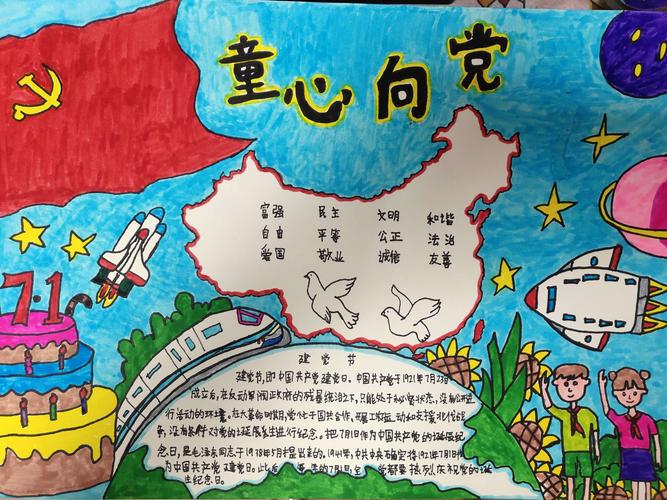 童心向党
富强 民主 文明 和谐
自由 平等 公正 法治
爱国 敬业 诚信 友善
7.1
建党节
建党节,即中国共产党建党日。中国共产党于1921年7月23日
成立后,在反动军阀政府的残暴统治之下,只能处于秘密状态,没有公开进
行活动的环境。在大革命时期,党忙于国共合作,开展工农运动和支援北伐战
争,没有条件对党的诞辰进行纪念。把7月1日作为中国共产党的诞辰纪
念日,是毛泽东同志于1938年5月提出来的。1941年,中共中央确定将1921年7月1日作
为中国共产党建党日。此后 年的7月1日,全党都要热烈庆祝党的诞
生纪念日。